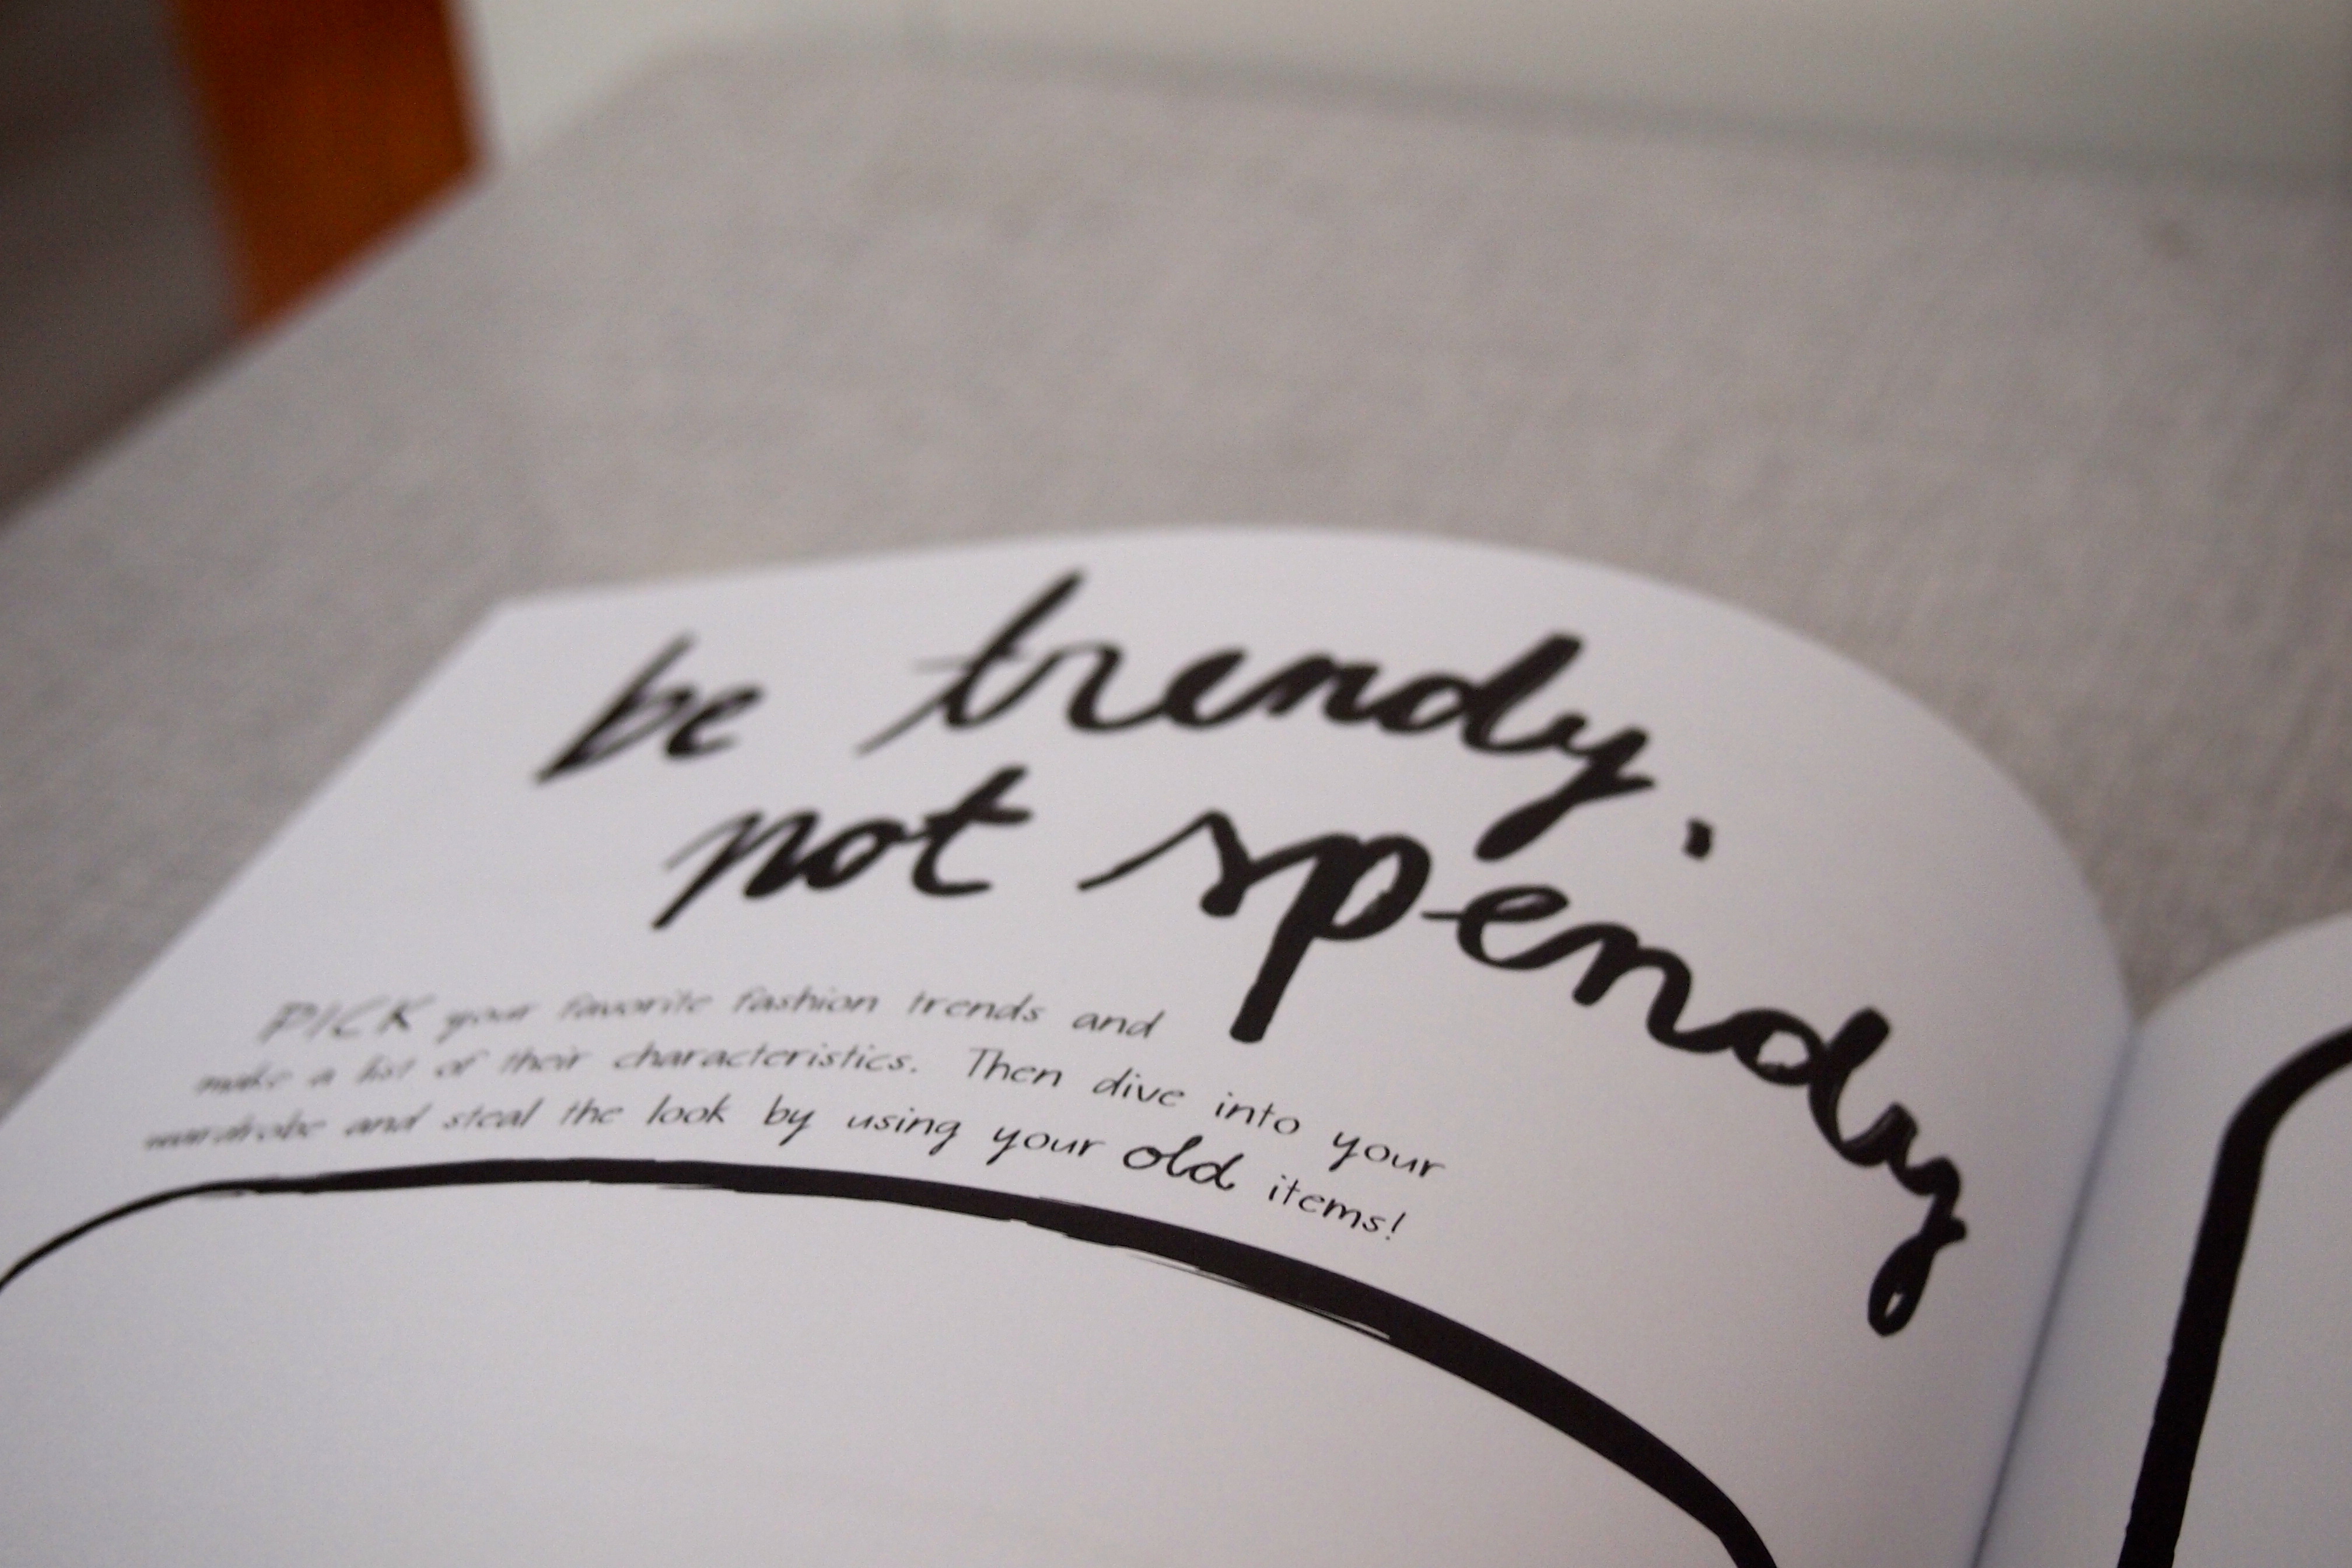 be trendy,
not spendy
PICK your favorite fashion trends and
make a list of their characteristics. Then dive into your
wardrobe and steal the look by using your old items!